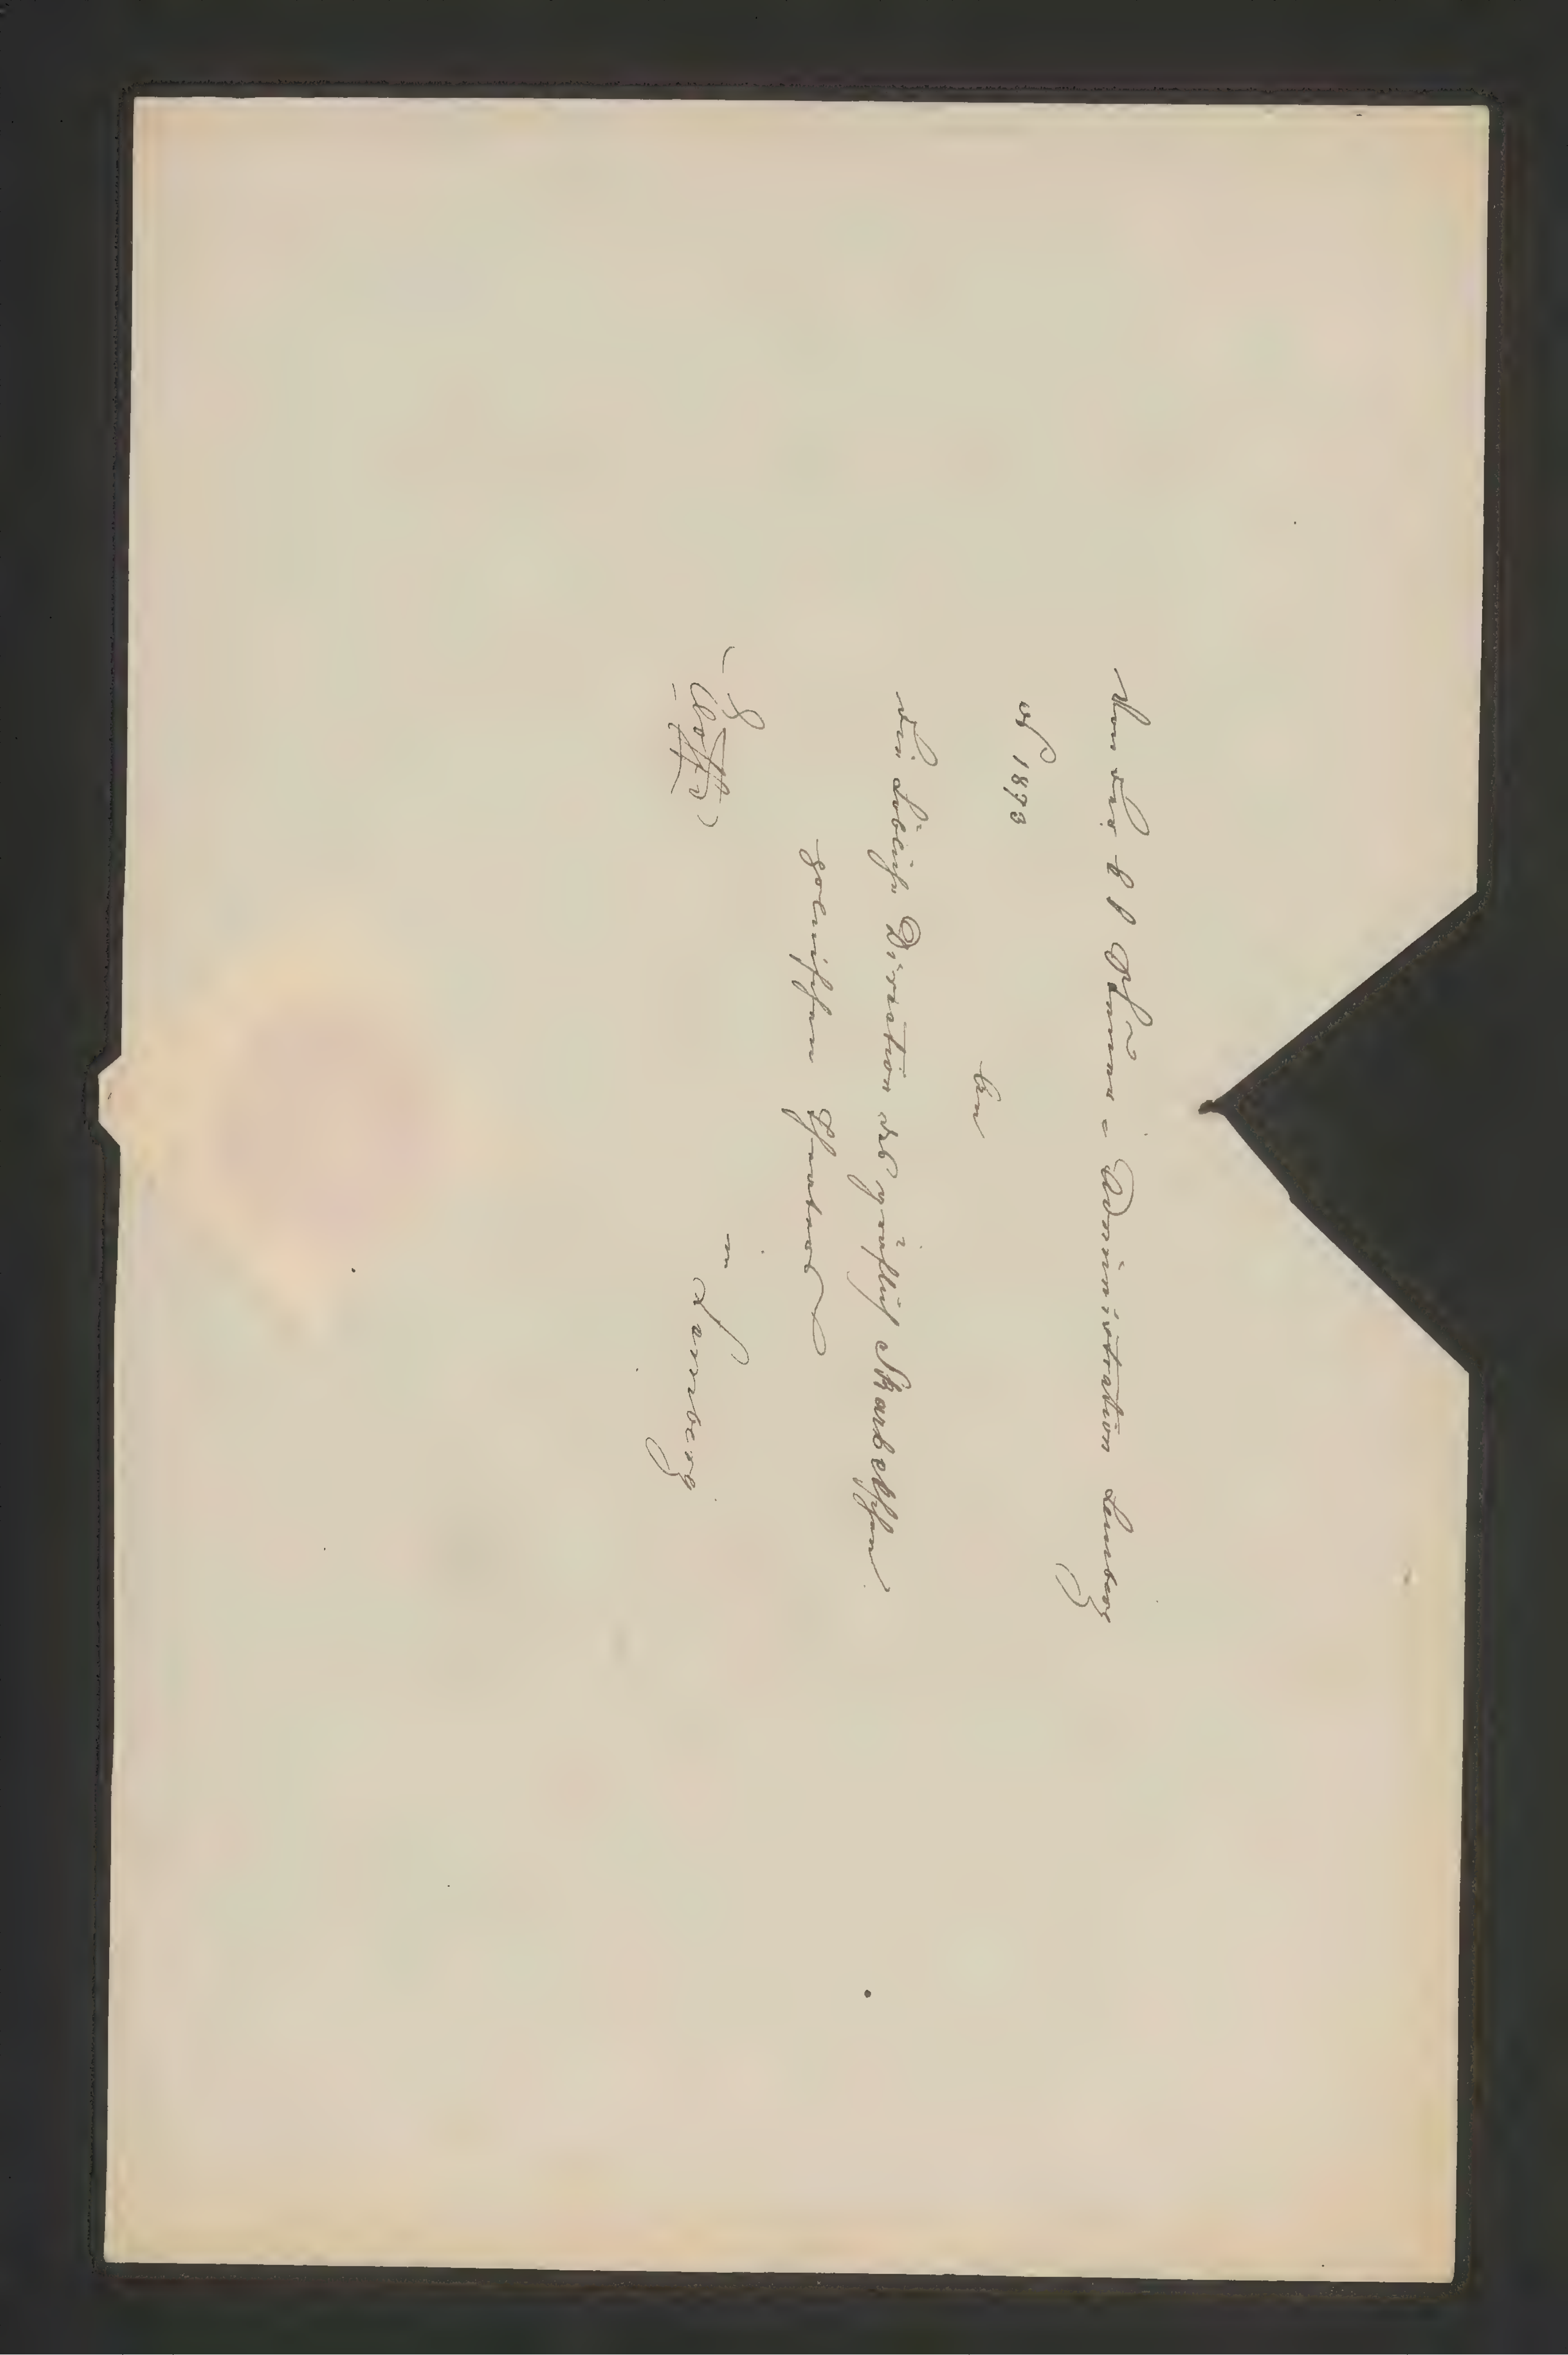 Von der k k Steuer = Administration Lemberg
N 1873
An
die Löbliche Direction des gräflich Skarbekschen
polnischen Theaters
in
Lemberg